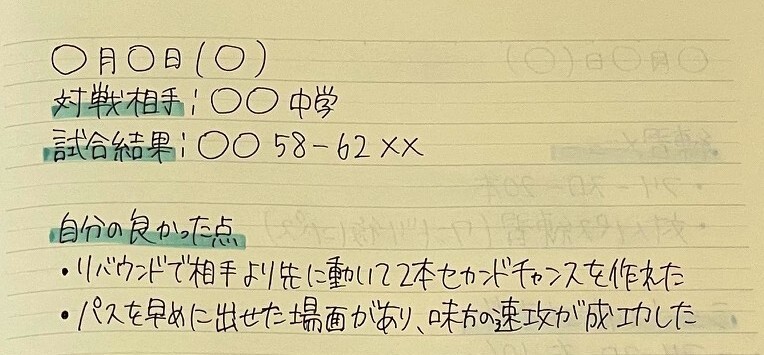 〇月〇日(〇)
対戦相手:〇〇中学
試合結果:〇〇 58-62 ××
自分の良かった点
・リバウンドで相手より先に動いて2本セカンドチャンスを作れた
・パスを早めに出せた場面があり、味方の速攻が成功した